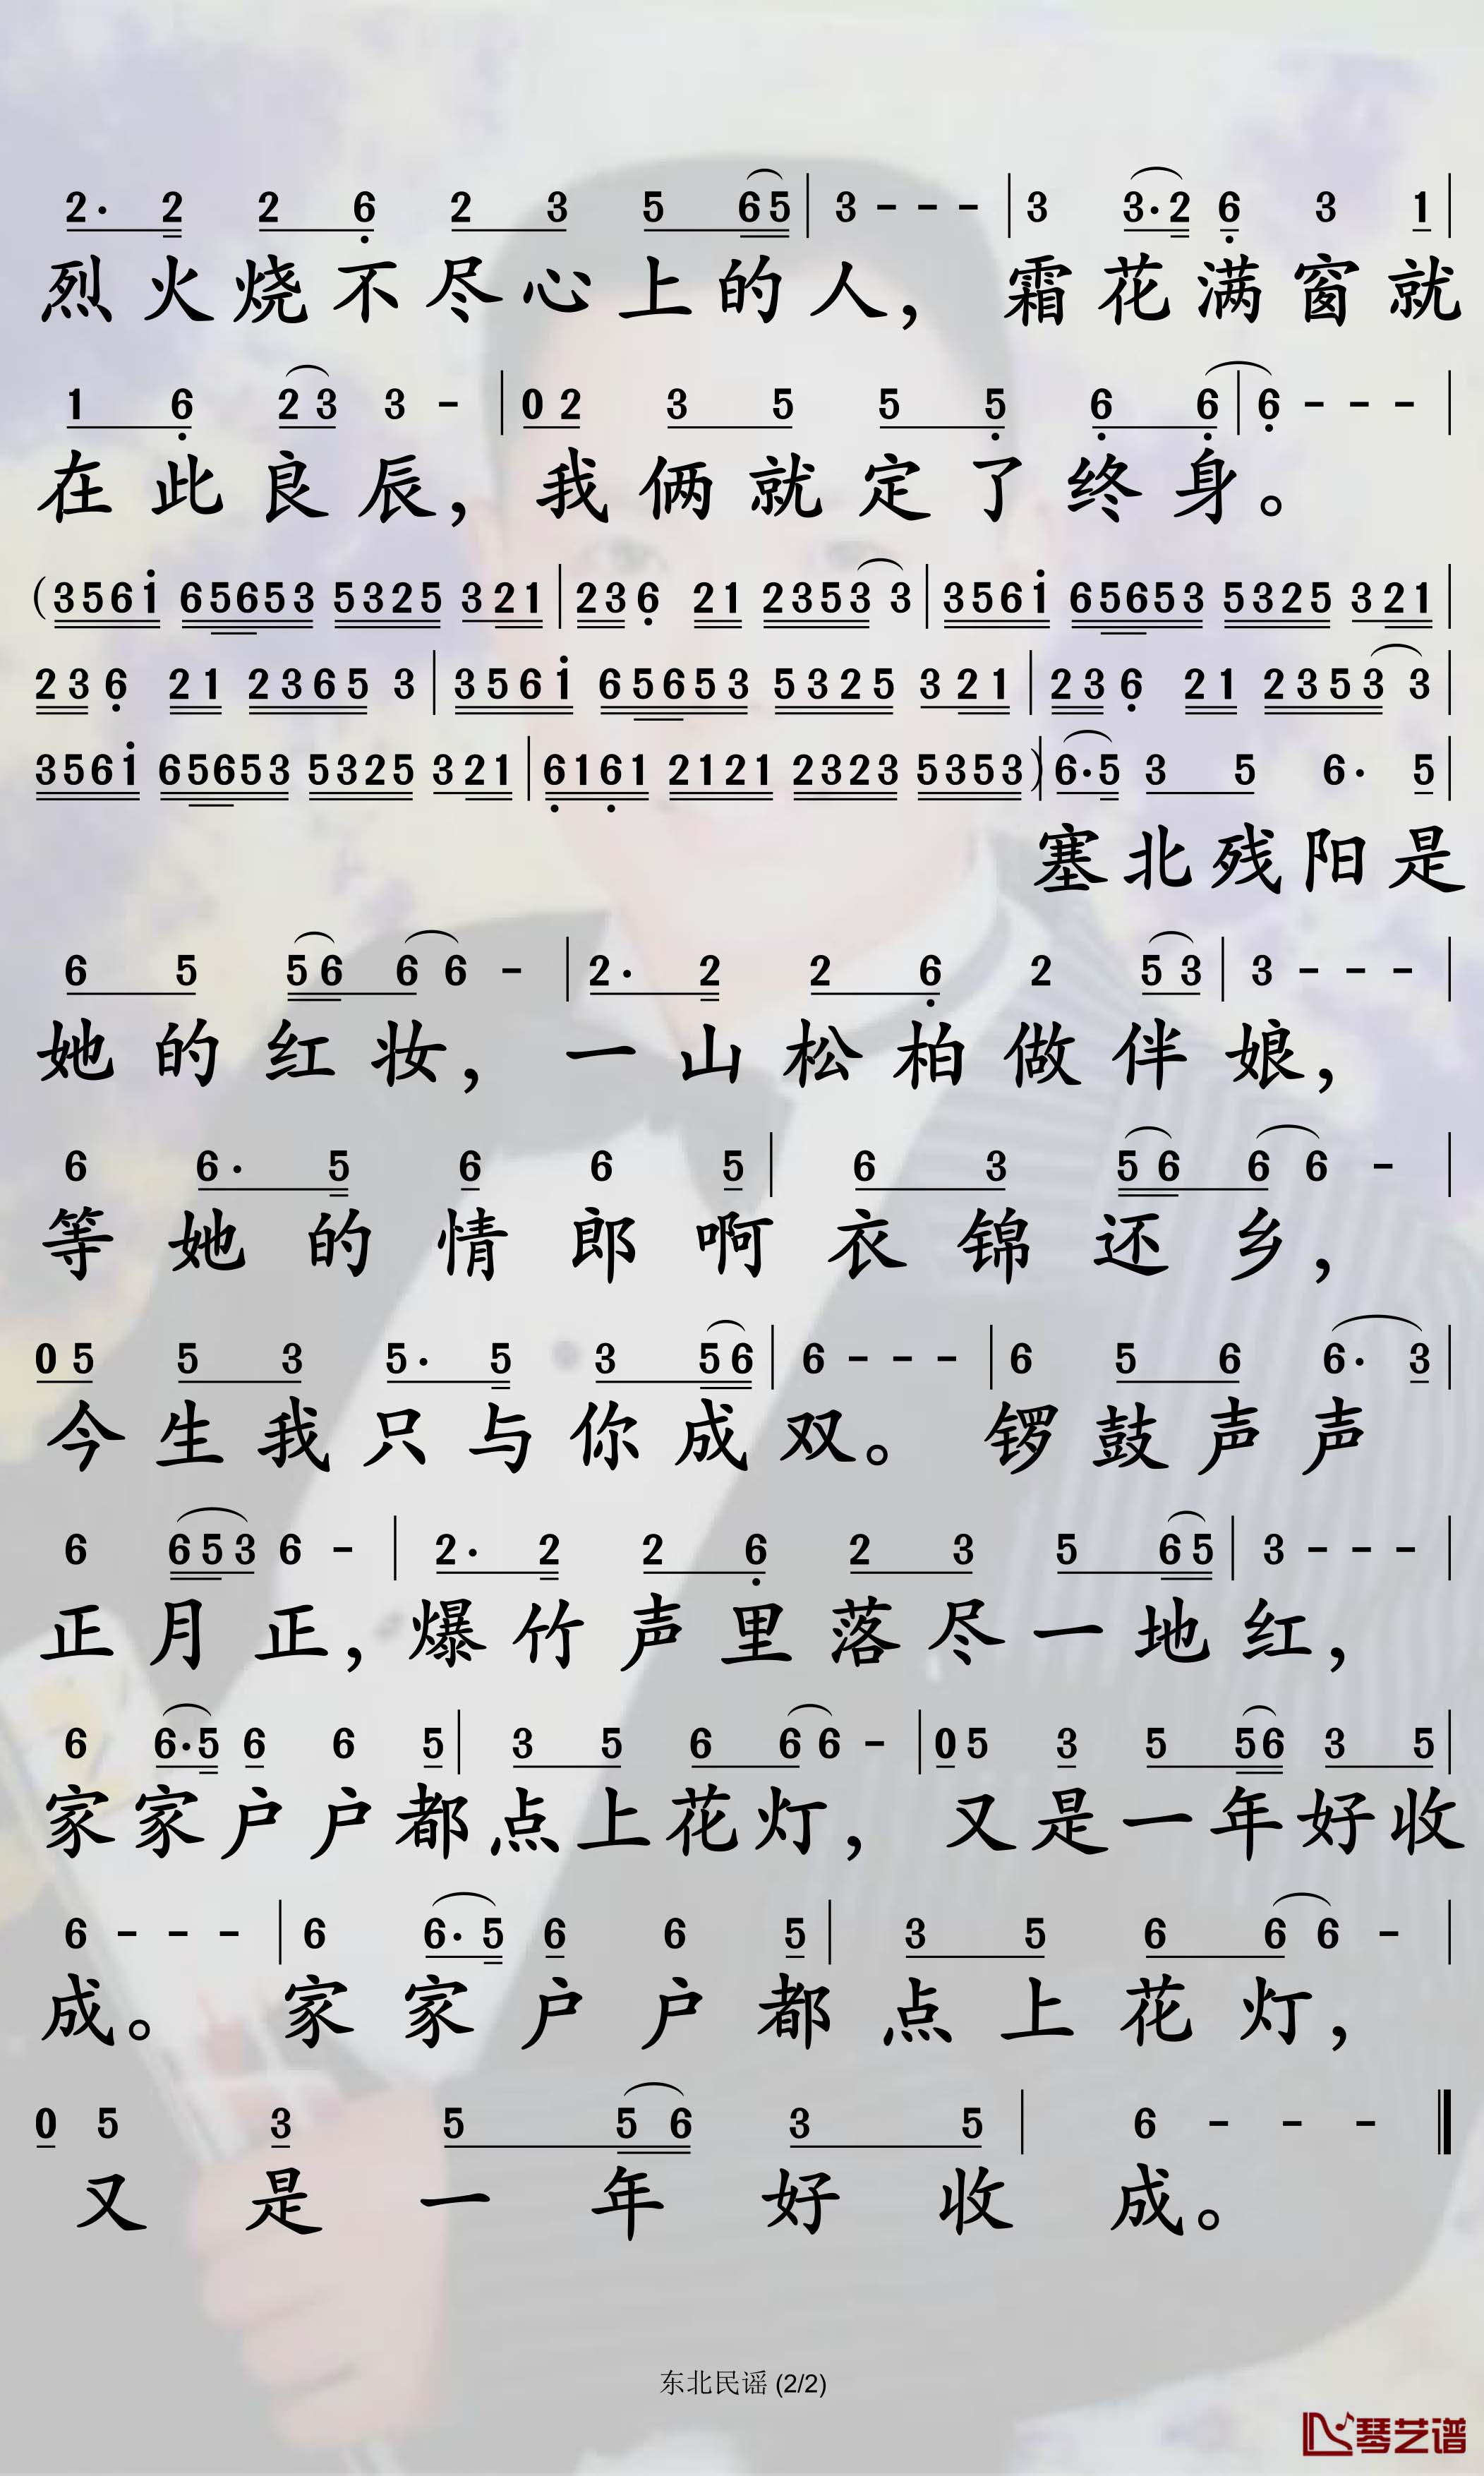 2· 2 2 6 2 3 5 65 | 3 - - - | 3 3·2 6 3 1 |
烈火烧不尽心上的人，霜花满窗就
1 6 23 3 - | 02 3 5 5 5 6 6 | 6 - - - |
在此良辰，我俩就定了终身。
(3561 65653 5325 321 | 236 21 2353 3 | 3561 65653 5325 321 |
236 21 2365 3 | 3561 65653 5325 321 | 236 21 2353 3 |
3561 65653 5325 321 | 6161 2121 2323 5353) | 6·5 3 5 6· 5 |
塞北残阳是
6 5 56 6 6 - | 2· 2 2 6 2 53 | 3 - - - |
她的红妆，一山松柏做伴娘，
6 6· 5 6 6 5 | 6 3 56 6 6 - |
等她的情郎啊衣锦还乡，
05 5 3 5· 5 3 56 | 6 - - - | 6 5 6 6· 3 |
今生我只与你成双。锣鼓声声
6 653 6 - | 2· 2 2 6 2 3 5 65 | 3 - - - |
正月正，爆竹声里落尽一地红，
6 6·5 6 6 5 | 3 5 6 6 6 - | 05 3 5 56 3 5 |
家家户户都点上花灯，又是一年好收
6 - - - | 6 6·5 6 6 5 | 3 5 6 6 6 - |
成。家家户户都点上花灯，
0 5 3 5 56 3 5 | 6 - - - ‖
又是一年好收成。
东北民谣 (2/2)
琴艺谱